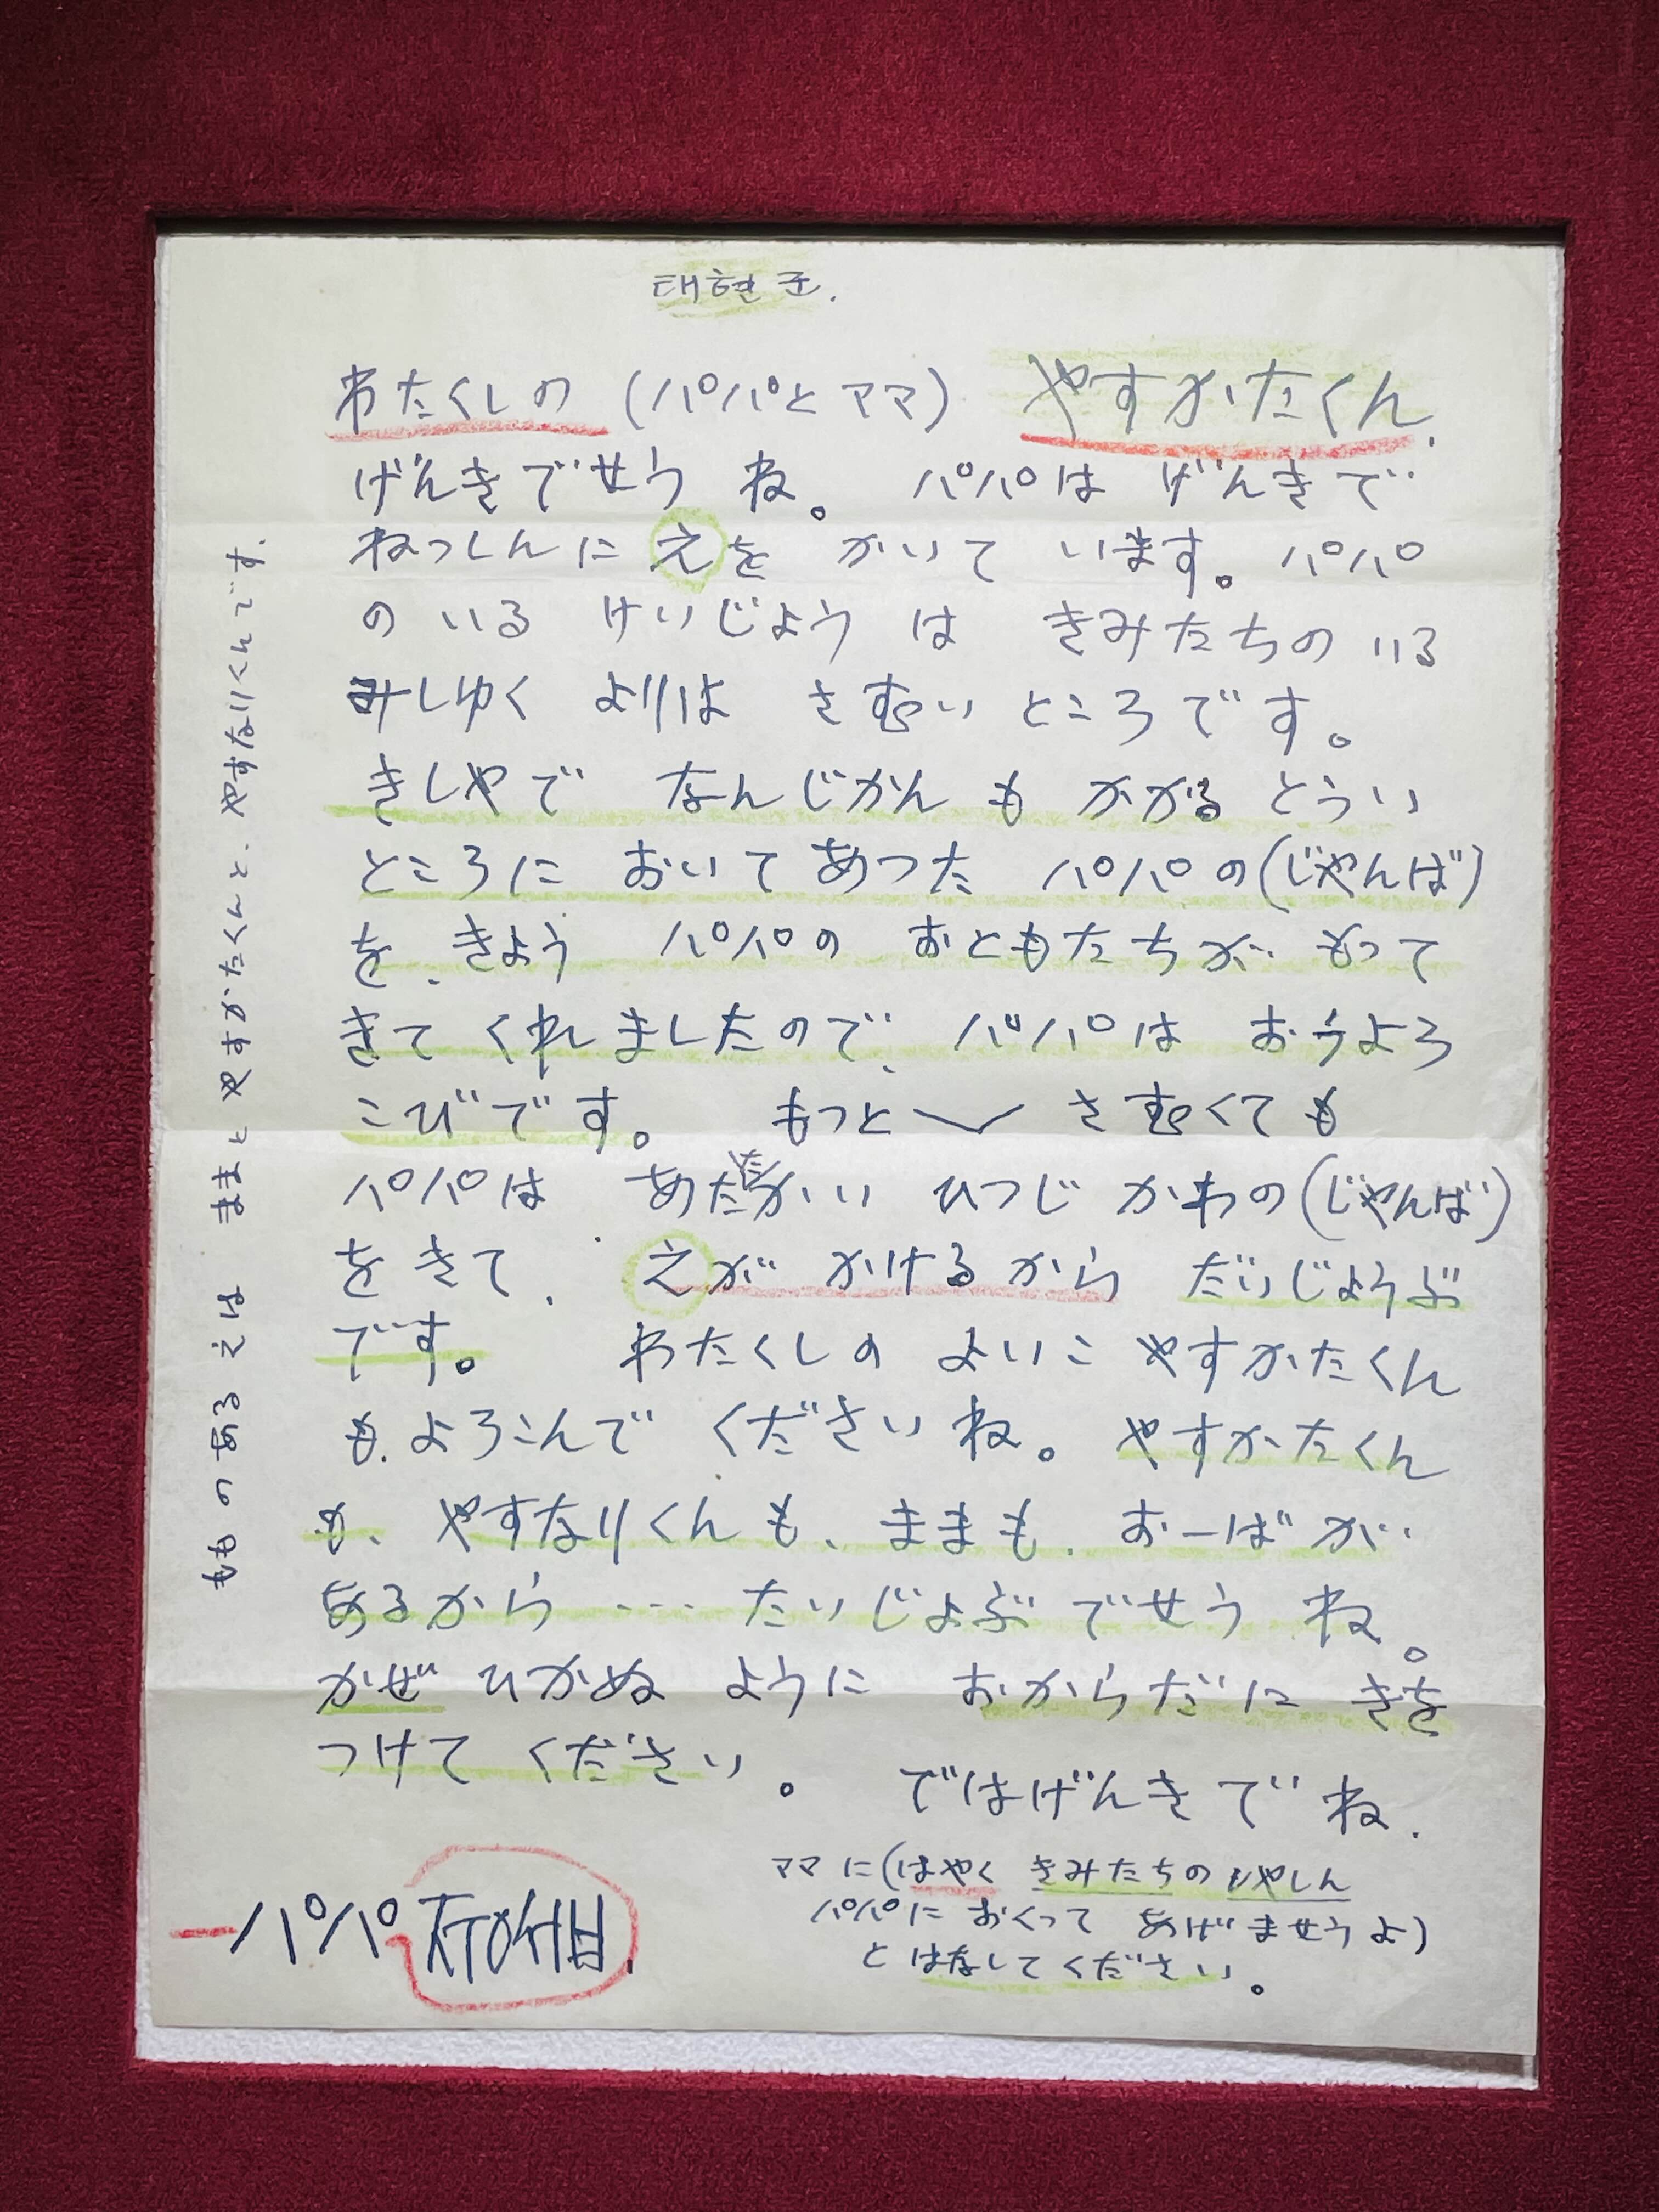 태현군.
わたくしの (パパとママ) やすかたくん.
げんきでせう ね。 パパは げんきで
ねっしんに えを かいて います。パパ
の いる けいじょう は きみたちの いる
みしゆく よりは さむい ところです。
きしやで なんじかん も かかる とうい
ところに おいて あつた パパの(じやんば)
を、きよう パパの おともたちが もって
きて くれましたので、パパは おうよろ
こびです。 もっと〱 さむくても
パパは あたたかい ひつじ かわの(じやんば)
を きて、 えが かけるから だいじょうぶ
です。 わたくしの よいこ やすかたくん
も、よろこんで くださいね。やすかたくん
も、やすなりくんも、ままも、おーばが
あるから … たいじょぶ でせう ね。
かぜ ひかぬ ように おからだに きを
つけて ください。 ではげんきで ね.
ママに(はやく きみたちの しやしん
パパに おくって あげませうよ)
と はなして ください。
パパ ㅈㅜㅇㅅㅓㅂ.
ものある えは ままと やすかたくんと、やすなりくんです.